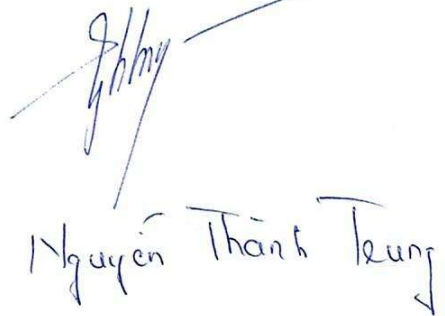 Nguyễn Thành Trung